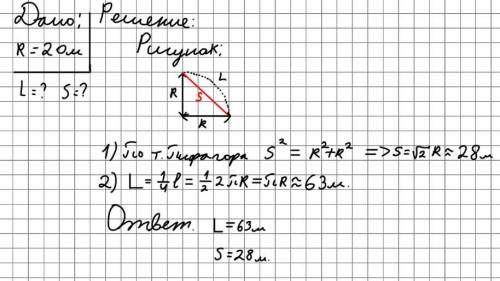 Дано: Решение:
R = 20м Рисунок:
L = ? S = ?
L
R S
R
1) По т. Пифагора S² = R² + R² => S = √2 R ≈ 28м
2) L = 1/4 l = 1/2 2πR = πR ≈ 63м.
Ответ. L = 63м
S = 28м.